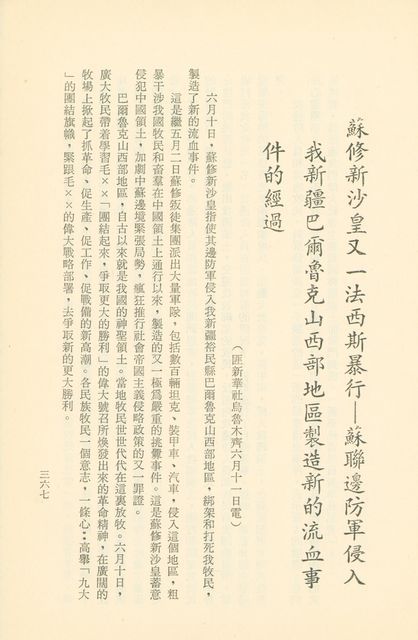 蘇修新沙皇又一法西斯暴行——蘇聯邊防軍侵入
我新疆巴爾魯克山西部地區製造新的流血事
件的經過
（匪新華社烏魯木齊六月十一日電）
六月十日，蘇修新沙皇指使其邊防軍侵入我新疆裕民縣巴爾魯克山西部地區，綁架和打死我牧民，
製造了新的流血事件。
這是繼五月二日蘇修叛徒集團派出大量軍隊，包括數百輛坦克、裝甲車、汽車，侵入這個地區，粗
暴干涉我國牧民和畜羣在中國領土上通行以來，製造的又一極為嚴重的挑釁事件。這是蘇修新沙皇蓄意
侵犯中國領土，加劇中蘇邊境緊張局勢，瘋狂推行社會帝國主義侵略政策的又一罪證。
巴爾魯克山西部地區，自古以來就是我國的神聖領土。當地牧民世世代代在這裏放牧。六月十日，
廣大牧民帶着學習毛××「團結起來，爭取更大的勝利」的偉大號召所煥發出來的革命精神，在廣闊的
牧場上掀起了抓革命、促生產、促工作、促戰備的新高潮。各民族牧民一個意志，一條心：高舉「九大
」的團結旗幟，緊跟毛××的偉大戰略部署，去爭取新的更大勝利。
三六七